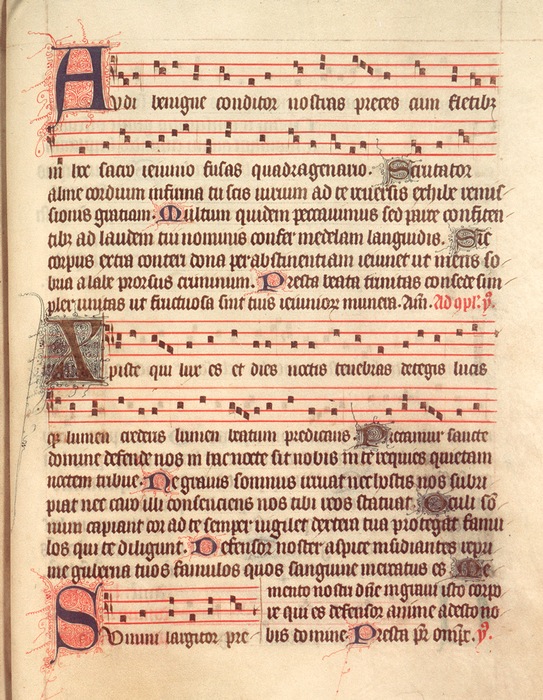 Audi benigne conditor nostras preces cum fletibz
in hoc sacro ieiunio fusas quadragenario. Scrutator
alme cordium infirma tu scis virium ad te reuersis exhibe remis
sionis gratiam. Multum quidem peccauimus sed parce confiten
tibz ad laudem tui nominis confer medelam languidis. Sic
corpus extra conteri dona per abstinentiam ieiunet ut mens so
bria a labe prorsus criminum. Presta beata trinitas concede sim
plex unitas ut fructuosa sint tuis ieiuniorz munera. Am.
Xpiste qui lux es et dies noctis tenebras detegis lucis
qz lumen crederis lumen beatum predicans. Precamur sancte
domine defende nos in hac nocte sit nobis in te requies quietam
noctem tribue. Ne grauis somnus irruat nec hostis nos subri
piat nec caro illi consenciens nos tibi reos statuat. Oculi som
num capiant cor ad te semper uigilet dextera tua protegat famu
los qui te diligunt. Defensor noster aspice insidiantes repri
me guberna tuos famulos quos sanguine mercatus es. Me
mento nostri dne in graui isto corpo
re qui es defensor anime adesto no
Summi largitor pre
bis domine. Presta pr omps.